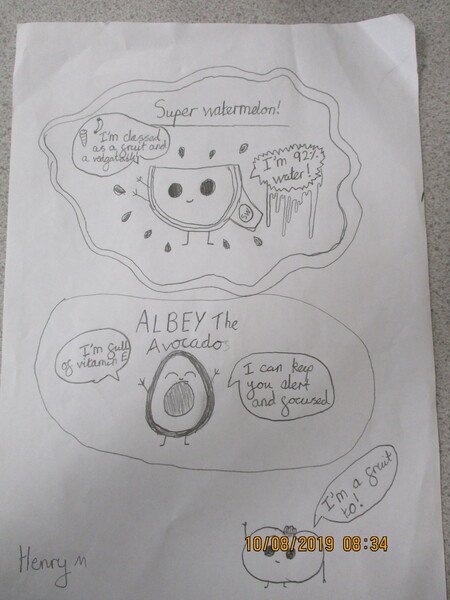 Super watermelon!
I'm classed
as a fruit and
a vegatable
I'm 92%
water!
SW
ALBEY The
Avocado
I'm full
of vitamin E
I can keep
you alert
and focused
I'm a fruit
to!
10/08/2019 08:34
Henry M